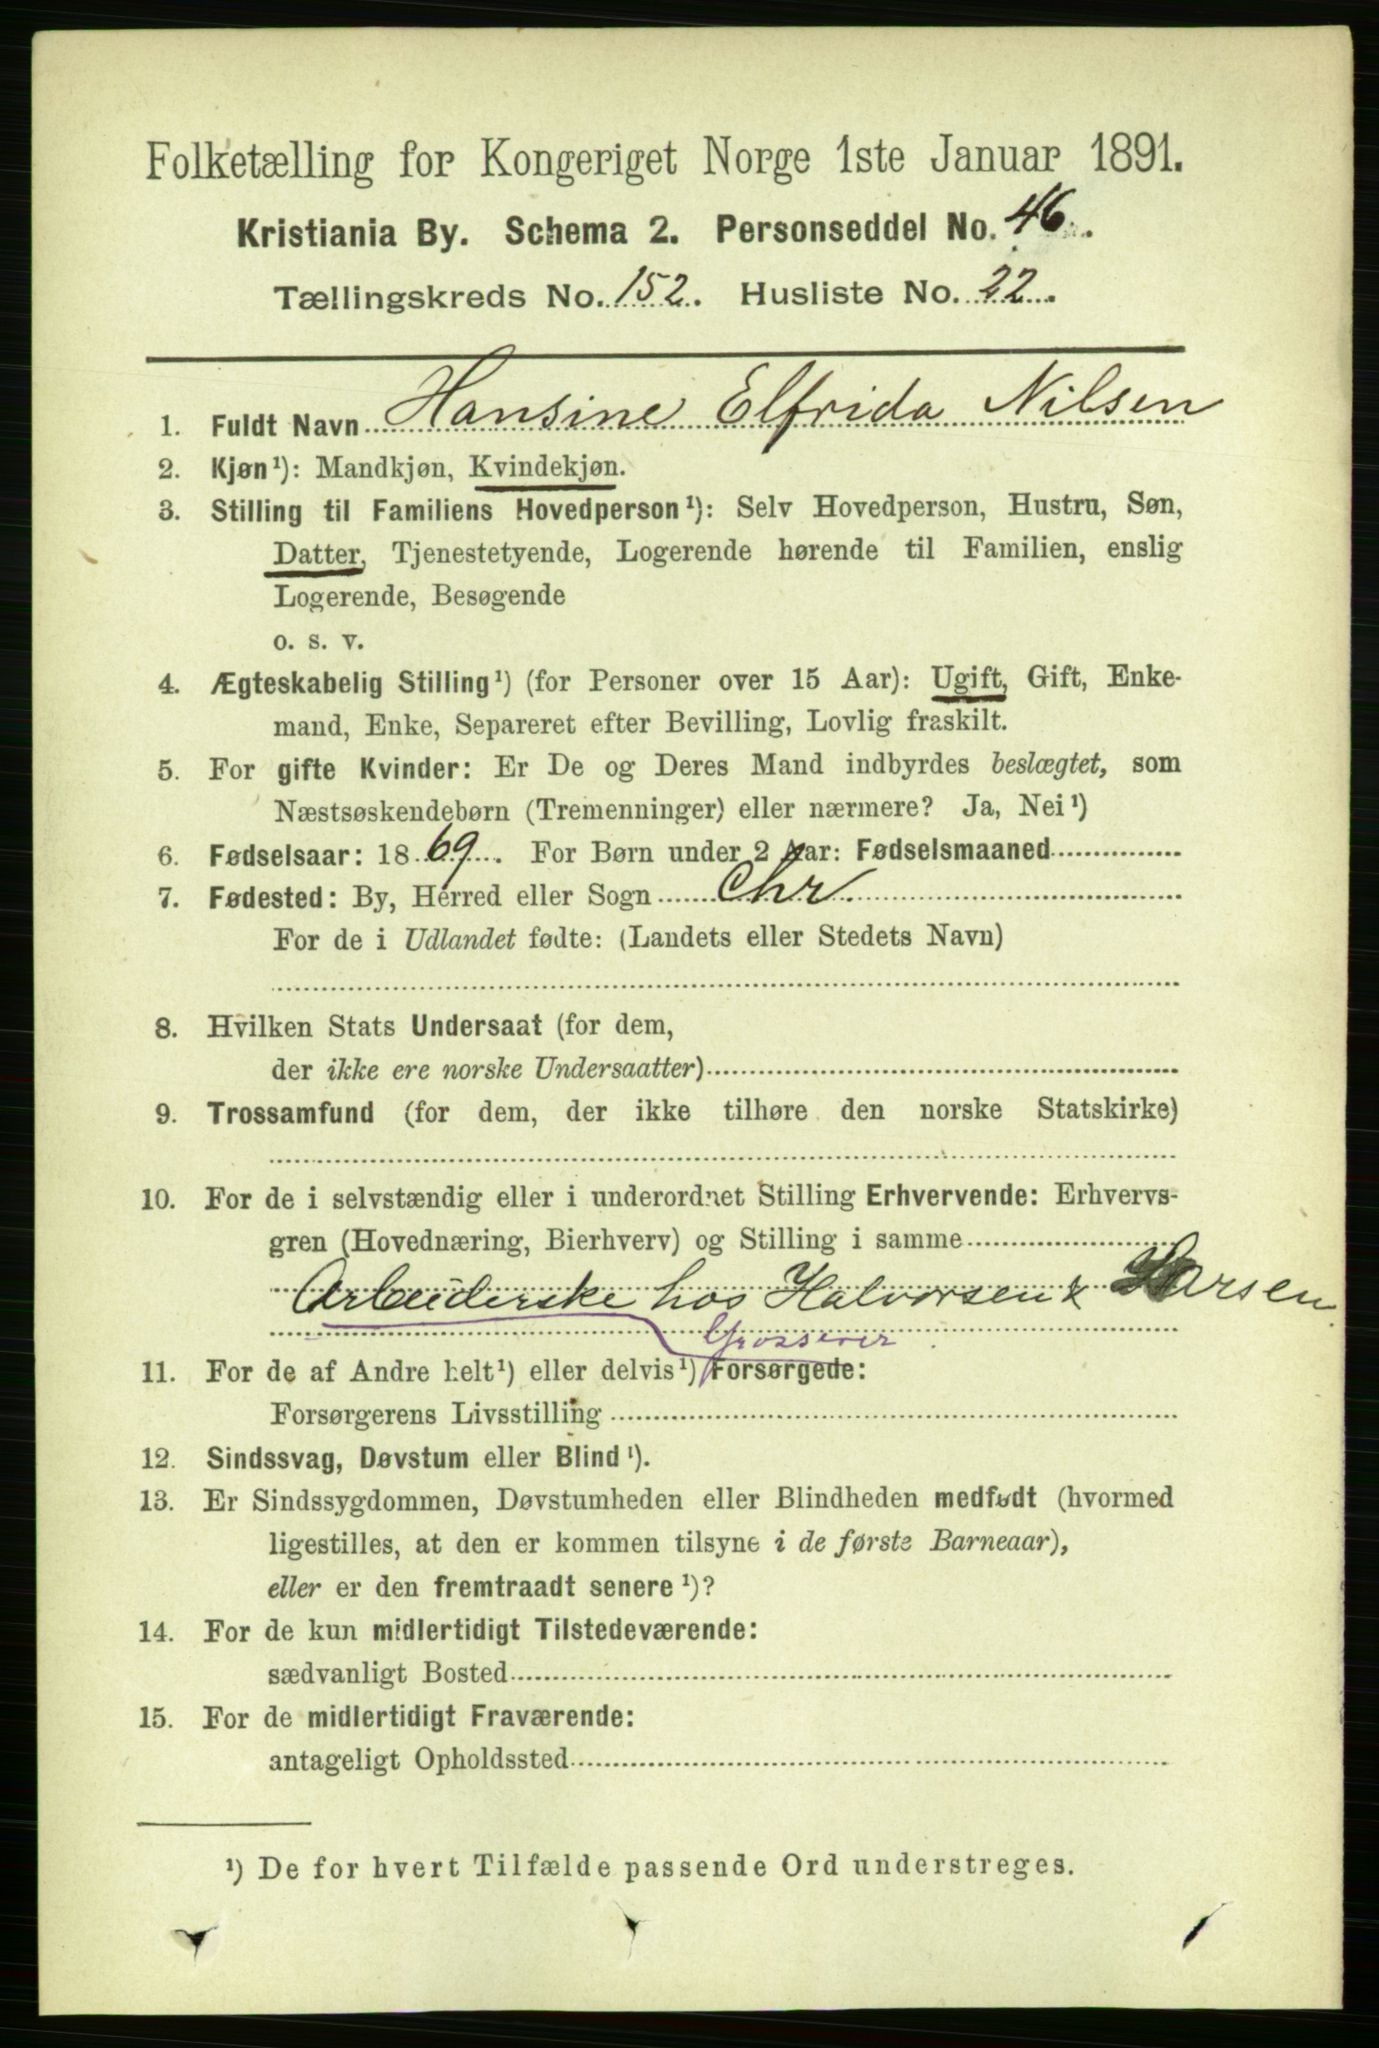 Folketælling for Kongeriget Norge 1ste Januar 1891.
Kristiania By. Schema 2. Personseddel No. 46.
Tællingskreds No. 152. Husliste No. 22.
1. Fuldt Navn Hansine Elfrida Nilsen
2. Kjøn¹): Mandkjøn, Kvindekjøn.
3. Stilling til Familiens Hovedperson¹): Selv Hovedperson, Hustru, Søn,
Datter, Tjenestetyende, Logerende hørende til Familien, enslig
Logerende, Besøgende
o. s. v.
4. Ægteskabelig Stilling¹) (for Personer over 15 Aar): Ugift, Gift, Enke-
mand, Enke, Separeret efter Bevilling, Lovlig fraskilt.
5. For gifte Kvinder: Er De og Deres Mand indbyrdes beslægtet, som
Næstsøskendebørn (Tremenninger) eller nærmere? Ja, Nei¹)
6. Fødselsaar: 1869. For Børn under 2 Aar: Fødselsmaaned
7. Fødested: By, Herred eller Sogn Chr.
For de i Udlandet fødte: (Landets eller Stedets Navn)
8. Hvilken Stats Undersaat (for dem,
der ikke ere norske Undersaatter)
9. Trossamfund (for dem, der ikke tilhøre den norske Statskirke)
10. For de i selvstændig eller i underordnet Stilling Erhvervende: Erhvervs-
gren (Hovednæring, Bierhverv) og Stilling i samme
Arbeiderske hos Halvorsen & Larsen
Grosserer
11. For de af Andre helt¹) eller delvis¹) Forsørgede:
Forsørgerens Livsstilling
12. Sindssvag, Døvstum eller Blind¹).
13. Er Sindssygdommen, Døvstumheden eller Blindheden medfødt (hvormed
ligestilles, at den er kommen tilsyne i de første Barneaar),
eller er den fremtraadt senere¹)?
14. For de kun midlertidigt Tilstedeværende:
sædvanligt Bosted
15. For de midlertidigt Fraværende:
antageligt Opholdssted
¹) De for hvert Tilfælde passende Ord understreges.